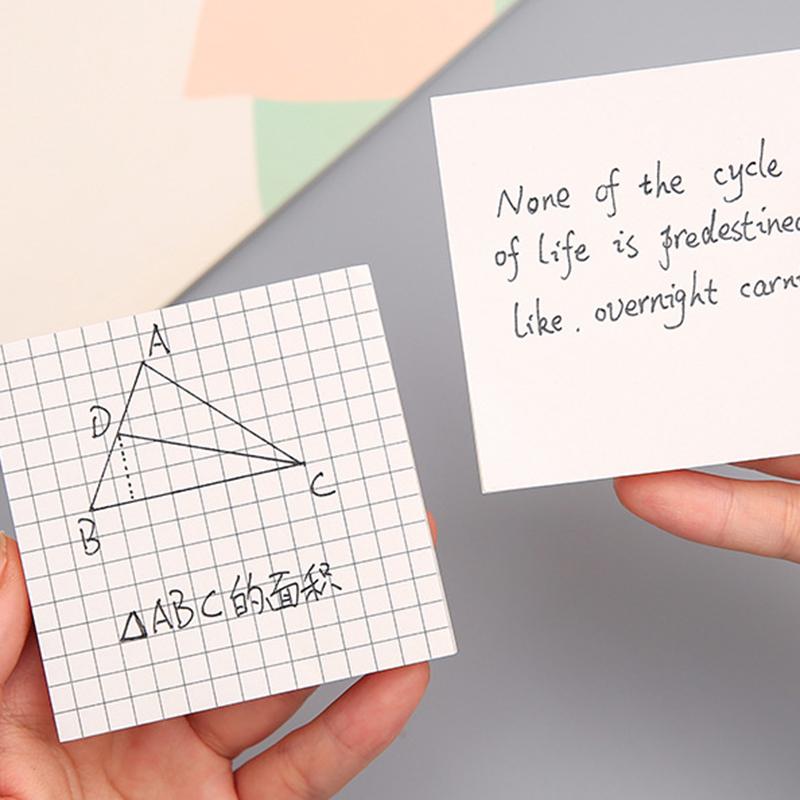 A
D
B
C
△ABC的面积
None of the cycle
of life is predestined
like. overnight